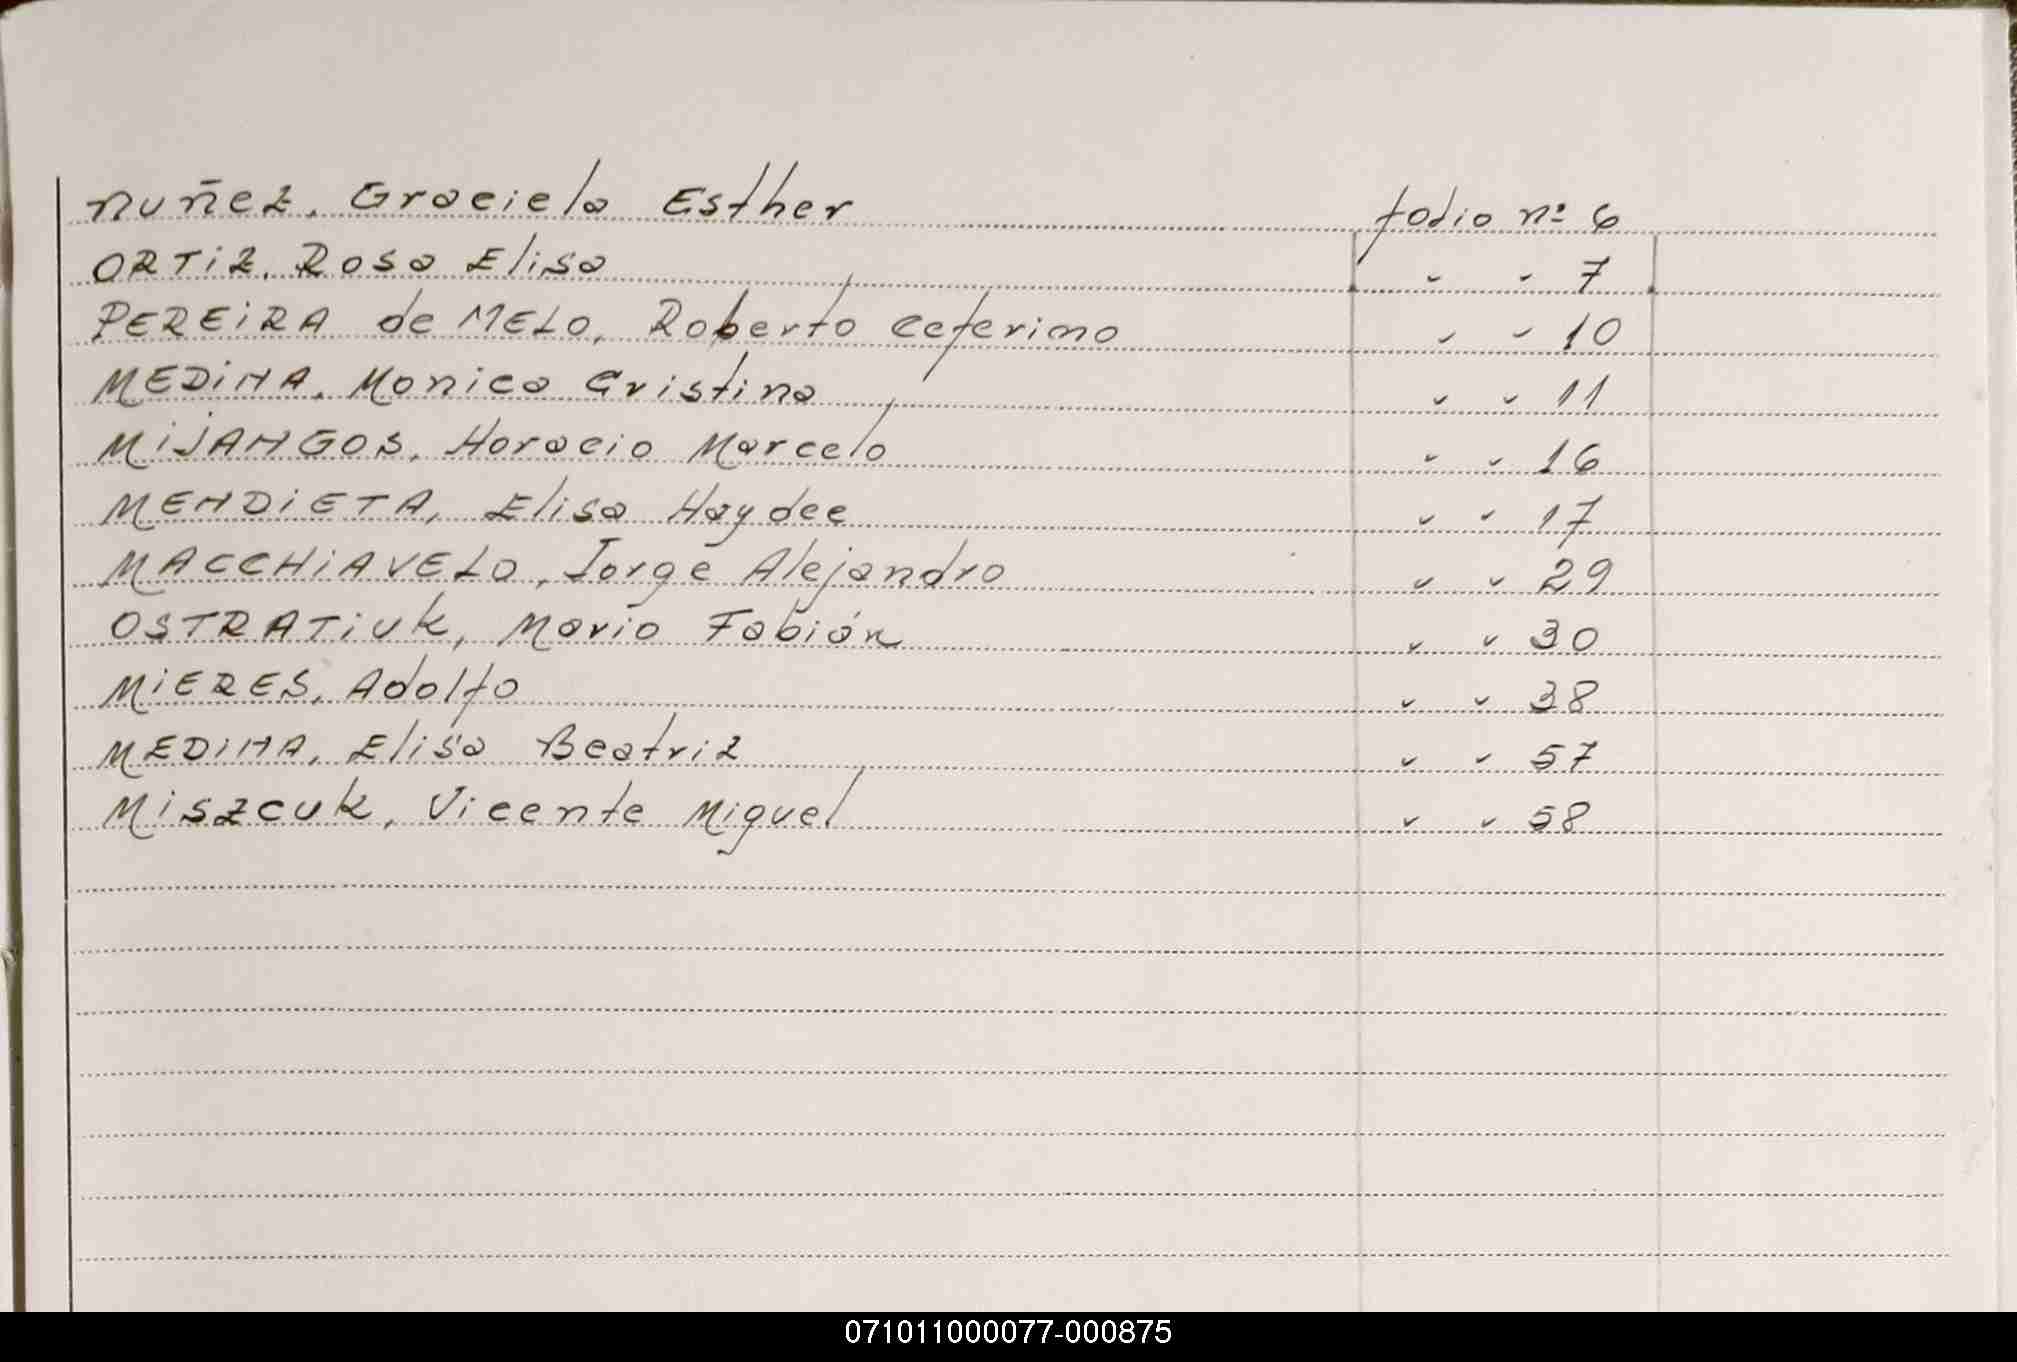 NUÑEZ, Graciela Esther folio nº 6
ORTIZ, Rosa Elisa " " 7
PEREIRA de MELO, Roberto Ceferino " " 10
MEDINA, Monica Cristina " " 11
MIJANGOS, Horacio Marcelo " " 16
MENDIETA, Elisa Haydee " " 17
MACCHIAVELO, Jorge Alejandro " " 29
OSTRATIUK, Mario Fabián " " 30
MIERES, Adolfo " " 38
MEDINA, Elisa Beatriz " " 57
MISZCUK, Vicente Miguel " " 58
071011000077-000875